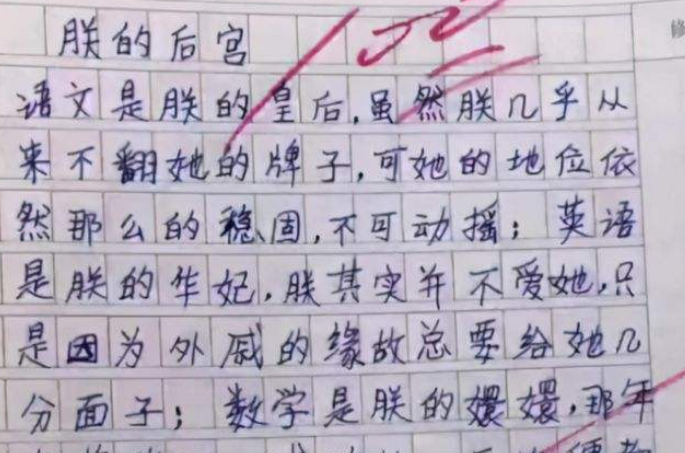 朕的后宫
语文是朕的皇后,虽然朕几乎从
来不翻她的牌子,可她的地位依
然那么的稳固,不可动摇;英语
是朕的华妃,朕其实并不爱她,只
是因为外戚的缘故总要给她几
分面子;数学是朕的嬛嬛,那年